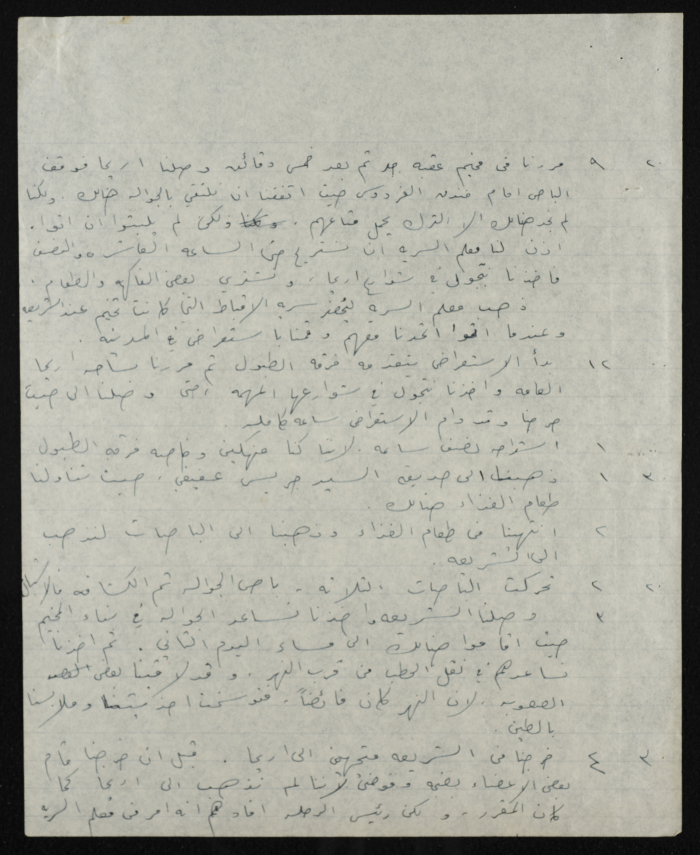 ٩ ٢٠ مررنا في مخيم عقبه جبر ثم بعد خمس دقائق وصلنا اريحا فوقف
الباص امام فندق الفردوس حيث اتفقنا ان نلتقي بالجواله هنالك. ولكنا
لم نجد هنالك الا الترك يحمل متاعهم. ولكن لم يلبثوا ان اتوا.
اذن لنا معلم السريه ان نستريح حتى الساعه العاشره والنصف
فاخذنا نتجول في شوارع اريحا، ونشتري بعض الفاكهه والطعام.
ذهب معلم السريه ليحضر سريه الاقباط التي كانت تخيم عند الشريعه
وعندما اتوا اتحدنا معهم وقمنا باستعراض في المدينه.
١٢ ٠٠ بدأ الاستعراض يتقدمه فرقه الطبول ثم مررنا بساحه اريحا
العامه واخذنا نتجول في شوارعها المهمه حتى وصلنا الى حيث
خرجنا وقد دام الاستعراض ساعه كامله.
١ ٠٠ استراحه لنصف ساعه لاننا كنا منهكين وخاصه فرقه الطبول
١ ٣٠ ذهبنا الى حديقه السيد جريس عفيفي، حيث تناولنا
طعام الغذاء هنالك.
٢ انتهينا من طعام الغذاء وذهبنا الى الباصات لنذهب
الى الشريعه
٢ ٢٠ تحركت الباصات الثلاثه - باص الجواله ثم الكشافه فالاشبال
٣ وصلنا الشريعه واخذنا نساعد الجواله في بناء المخيم
حيث اقاموا هنالك الى مساء اليوم الثاني. ثم اخذنا
نساعدهم في نقل الحطب من قرب النهر. وقد لاقينا بعض
الصعوبه لان النهر كان فائضاً. فتوسخت احذيتنا وملابسنا
بالطين.
٤ ٣٠ خرجنا من الشريعه متجهين الى اريحا. قبل ان خرجنا قام
بعض الاعضاء بضجه وفوضى لاننا لم نذهب الى اريحا كما
كان المقرر. ولكن رئيس الرحله افادهم انه امر من معلم السريه